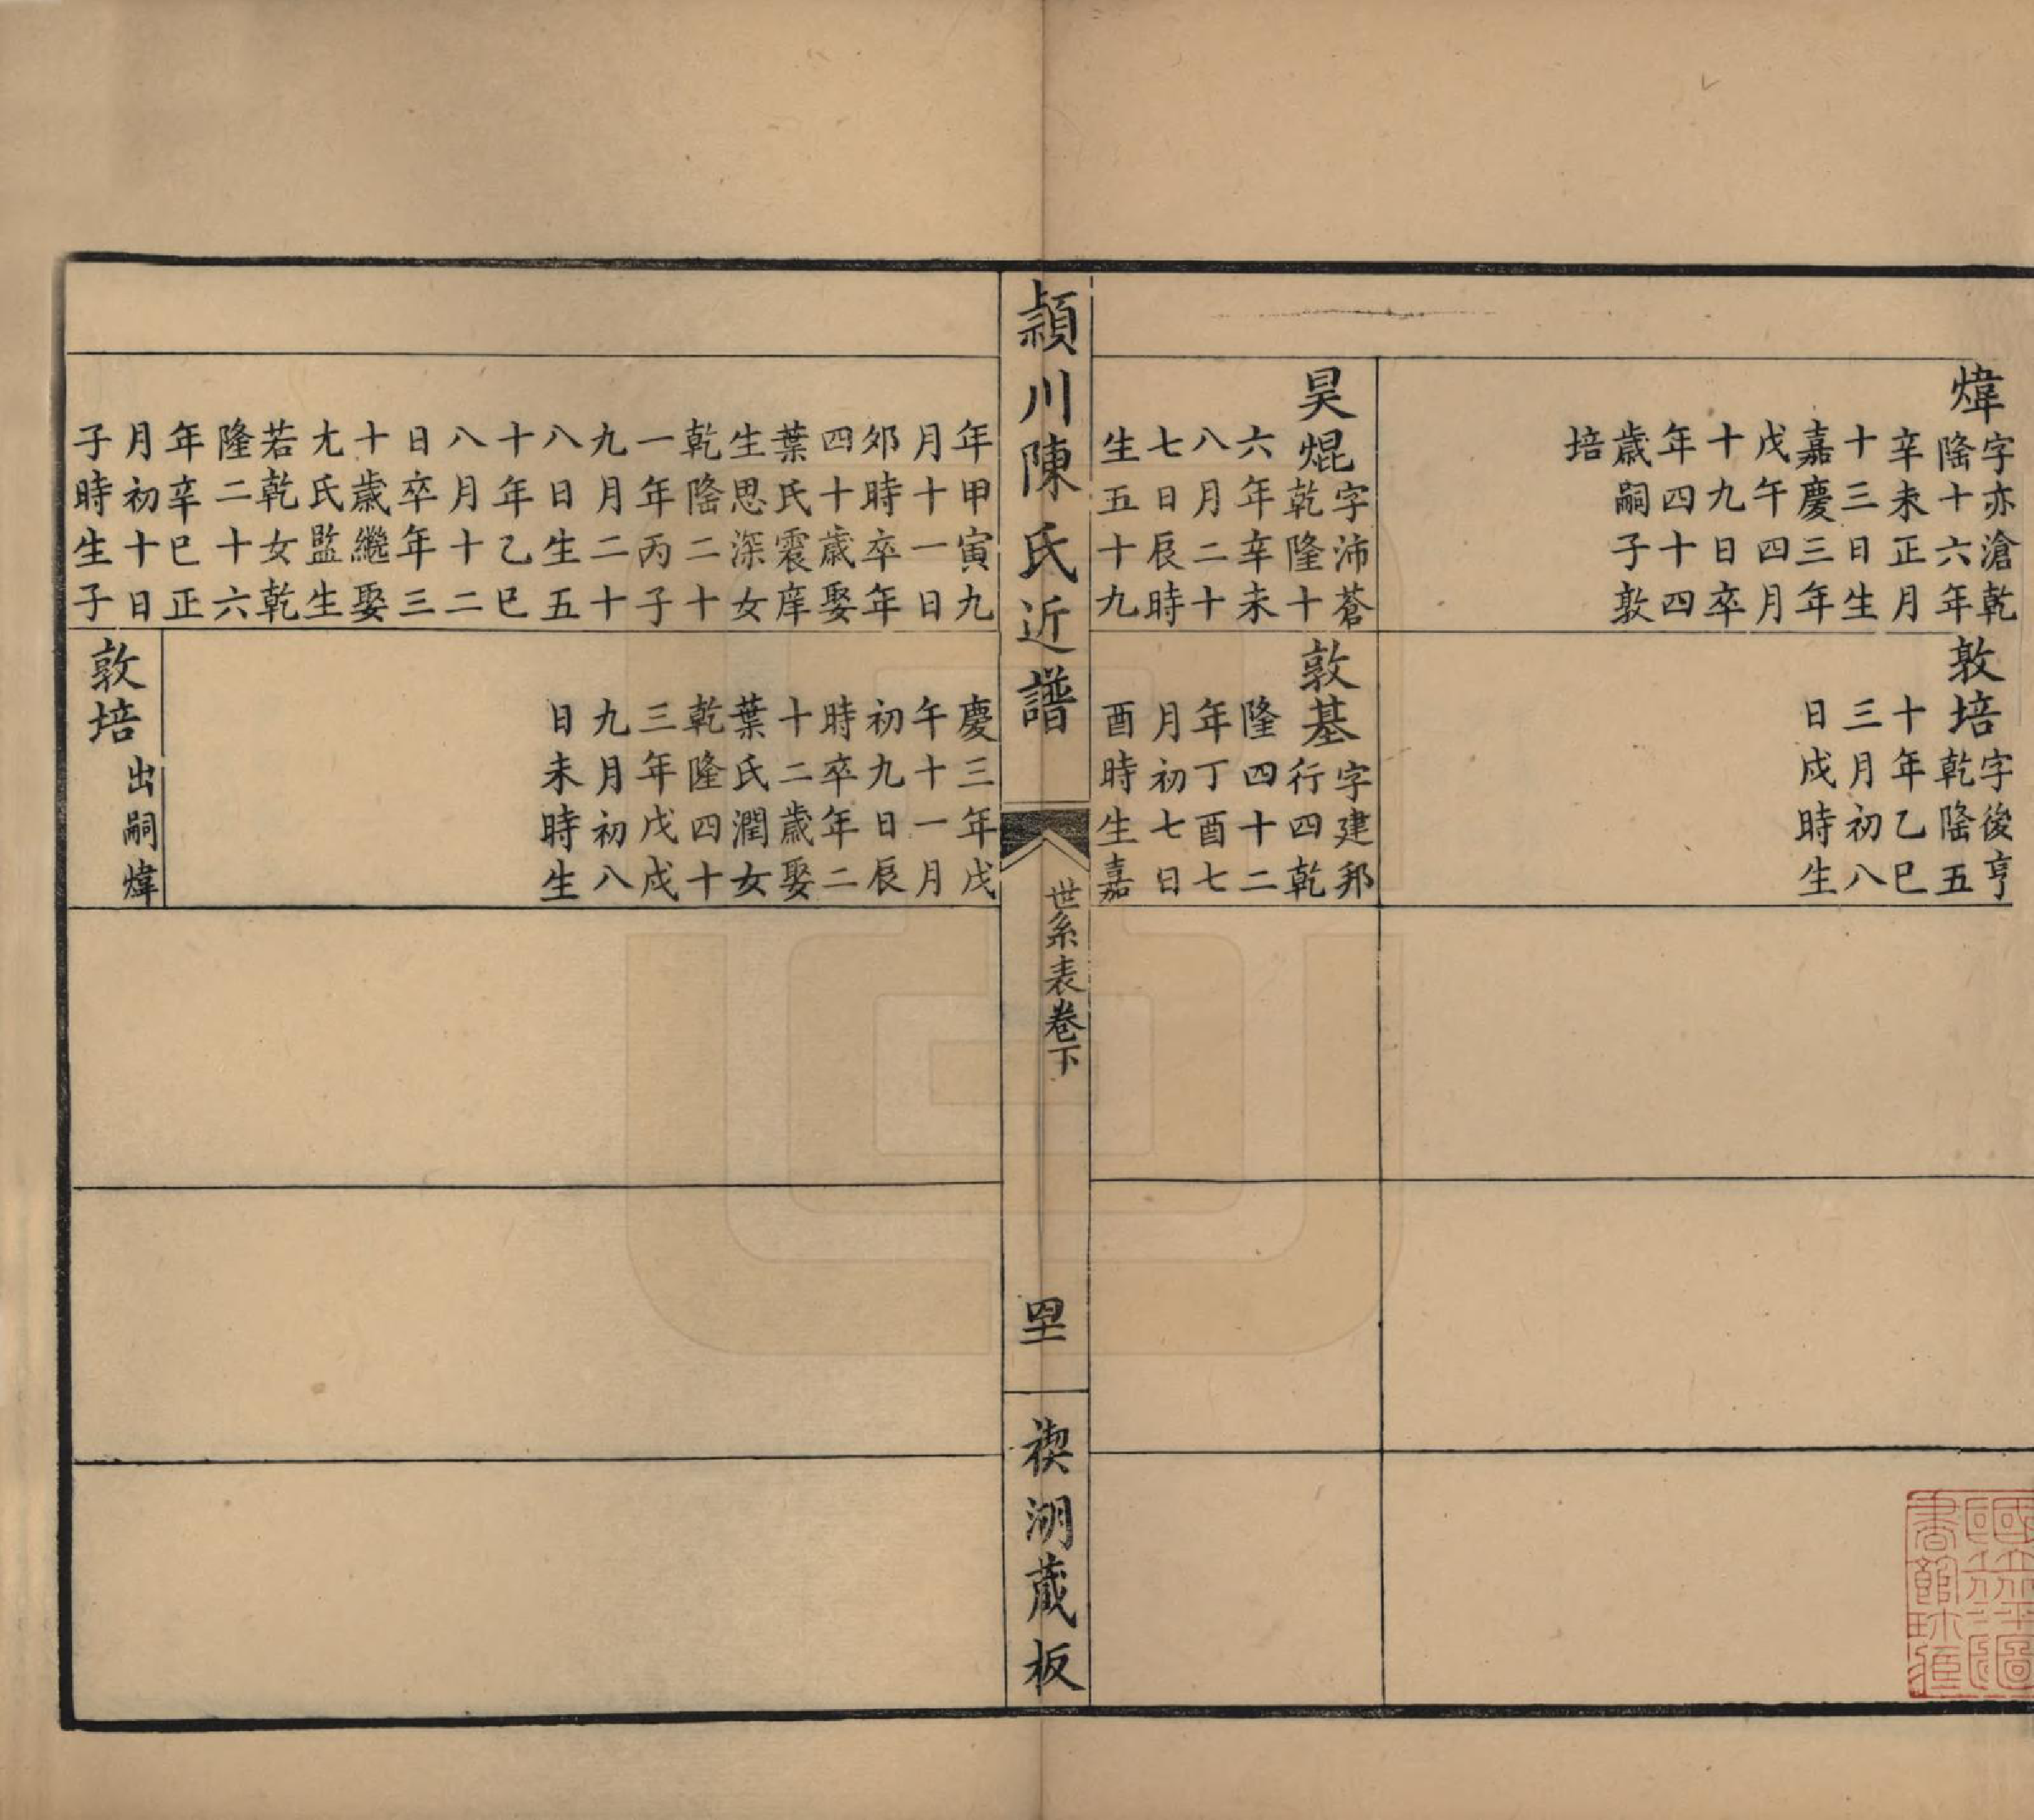 煒
字亦滄乾
隆十六年
辛未正月
十三日生
嘉慶三年
戊午四月
十九日卒
年四十四
歲嗣子敦
培
敦培
字後亨
乾隆五
十年乙巳
三月初八
日戌時生
昊焜
字沛蒼
乾隆十
六年辛未
八月二十
七日辰時
生五十九
年甲寅九
月十一日
郊時卒年
四十歲娶
葉氏震庠
生思深女
乾隆二十
一年丙子
九月二十
八日生五
十年乙巳
八月十二
日卒年三
十歲繼娶
尤氏監生
若乾女乾
隆二十六
年辛巳正
月初十日
子時生子
敦基
字建邦
行四乾
隆四十二
年丁酉七
月初七日
酉時生嘉
慶三年戊
午十一月
初九日辰
時卒年二
十二歲娶
葉氏潤女
乾隆四十
三年戊戌
九月初八
日未時生
敦培
出嗣煒
潁川陳氏近譜
世系表卷下
罜
禊湖藏板
國立北平圖
書館珍藏